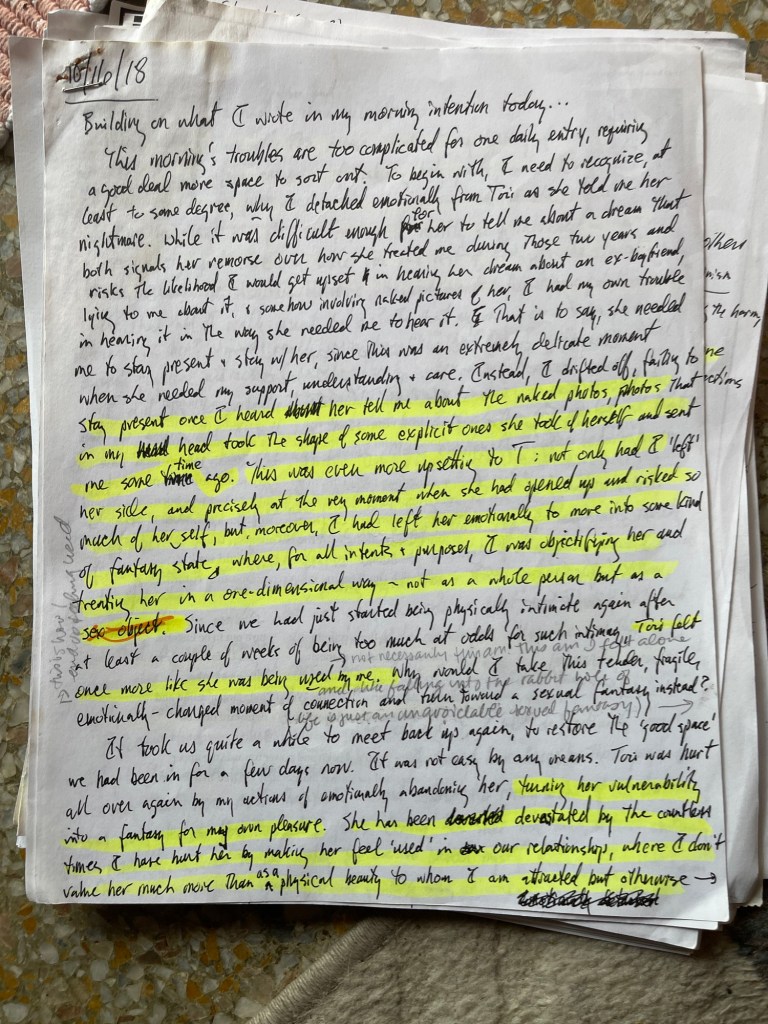 10/16/18
Building on what I wrote in my morning intention today...
This morning's troubles are too complicated for one daily entry, requiring
a good deal more space to sort out. To begin with, I need to recognize, at
least to some degree, why I detached emotionally from Tori as she told me her
nightmare. While it was difficult enough for her to tell me about a dream that
both signals her remorse over how she treated me during those two years and
risks the likelihood I would get upset in hearing her dream about an ex-boyfriend,
lying to me about it, & somehow involving naked pictures of her, I had my own trouble
in hearing it in the way she needed me to hear it. That is to say, she needed
me to stay present & stay w/ her, since this was an extremely delicate moment
when she needed my support, understanding & care. Instead, I drifted off, failing to
stay present once I heard her tell me about the naked photos, photos that
in my head took the shape of some explicit ones she took of herself and sent
me some time ago. This was even more upsetting to T: not only had I 'left'
her side, and precisely at the very moment when she had opened up and risked so
much of her self, but, moreover, I had left her emotionally to move into some kind
of fantasy state, where, for all intents & purposes, I was objectifying her and
treating her in a one-dimensional way – not as a whole person but as a
sex object. Since we had just started being physically intimate again after
at least a couple of weeks of being too much at odds for such intimacy, Tori felt
not necessarily I felt alone
once more like she was being used by me. Why would I take this tender, fragile,
and like falling into the rabbit hole of
emotionally-charged moment of connection and turn toward a sexual fantasy instead?
life is just an unavoidable sexual fantasy) →
It took us quite a while to meet back up again, to restore the 'good space'
we had been in for a few days now. It was not easy by any means. Tori was hurt
all over again by my actions of emotionally abandoning her, turning her vulnerability
into a fantasy for my own pleasure. She has been devastated by the countless
times I have hurt her by making her feel 'used' in our relationship, where I don't
value her much more than as a physical beauty to whom I am attracted but otherwise →
others
the harm
me